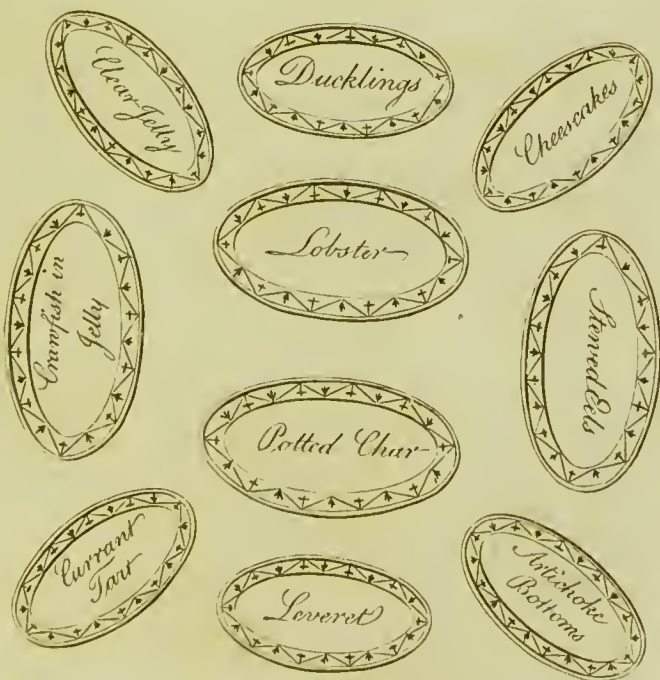 Clear Jelly
Ducklings
Cheescakes
Lobster
Crawfish in
Jelly
Stewed Eels
Potted Char
Currant
Tart
Leveret
Artichoke
Bottoms